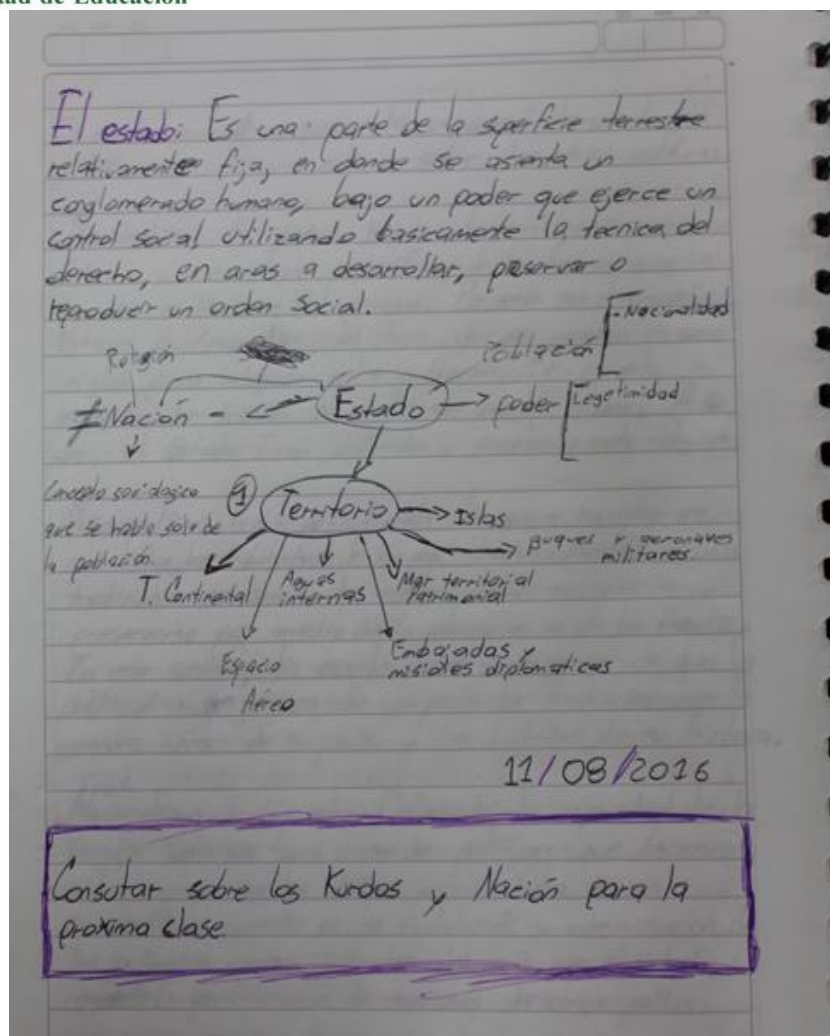 dad de Educación
El estado: Es una parte de la superficie terrestre
relativamente fija, en donde se asienta un
conglomerado humano, bajo un poder que ejerce un
control social utilizando basicamente la tecnica del
derecho, en aras a desarrollar, preservar o
reproducir un orden Social.
- Nacionalidad
Religión
Población
≠ Nación -
Estado
poder
Legetimidad
Concepto sociologico
que se habla solo de
la población.
1
Territorio
Islas
Buques y aeronaves
militares.
T. Continental
Aguas
internas
Mar territorial
Patrimonial
Espacio
Aéreo
Embajadas y
misiones diplomaticas
11/08/2016
Consutar sobre los Kurdos y Nación para la
proxima clase.